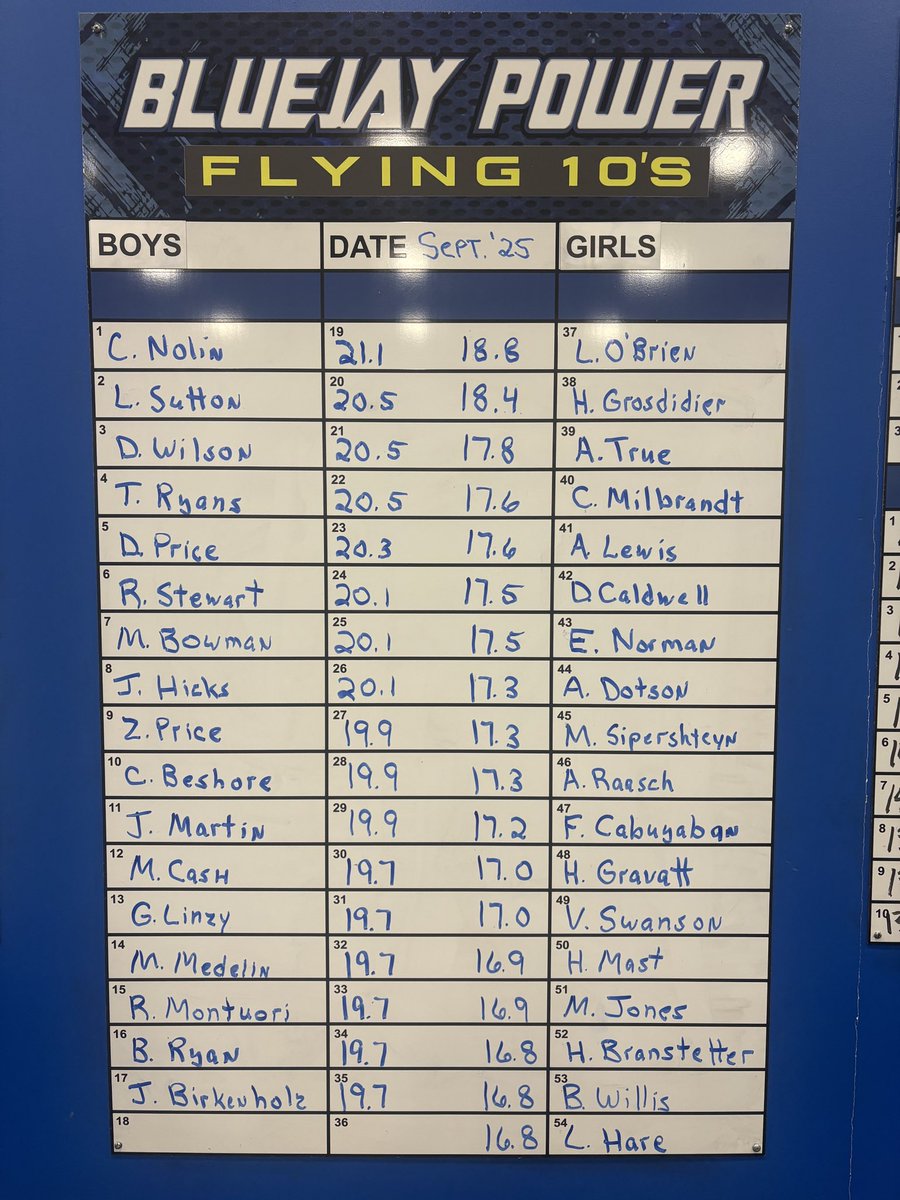 BLUEJAY POWER
FLYING 10'S
BOYS DATE SEPT. '25 GIRLS
1 C. Nolin 19 21.1 18.8 37 L. O'Brien
2 L. Sutton 20 20.5 18.4 38 H. Grosdidier
3 D. Wilson 21 20.5 17.8 39 A. True
4 T. Ryans 22 20.5 17.6 40 C. Milbrandt
5 D. Price 23 20.3 17.6 41 A. Lewis
6 R. Stewart 24 20.1 17.5 42 D. Caldwell
7 M. Bowman 25 20.1 17.5 43 E. Norman
8 J. Hicks 26 20.1 17.3 44 A. Dotson
9 Z. Price 27 19.9 17.3 45 M. Sipershteyn
10 C. Beshore 28 19.9 17.3 46 A. Raasch
11 J. Martin 29 19.9 17.2 47 F. Cabuyaban
12 M. Cash 30 19.7 17.0 48 H. Gravatt
13 G. Linzy 31 19.7 17.0 49 V. Swanson
14 M. Medelin 32 19.7 16.9 50 H. Mast
15 R. Montuori 33 19.7 16.9 51 M. Jones
16 B. Ryan 34 19.7 16.8 52 H. Branstetter
17 J. Birkenholz 35 19.7 16.8 53 B. Willis
18 36 16.8 54 L. Hare
3
1
2
3
4
5
6
7
8
9
10